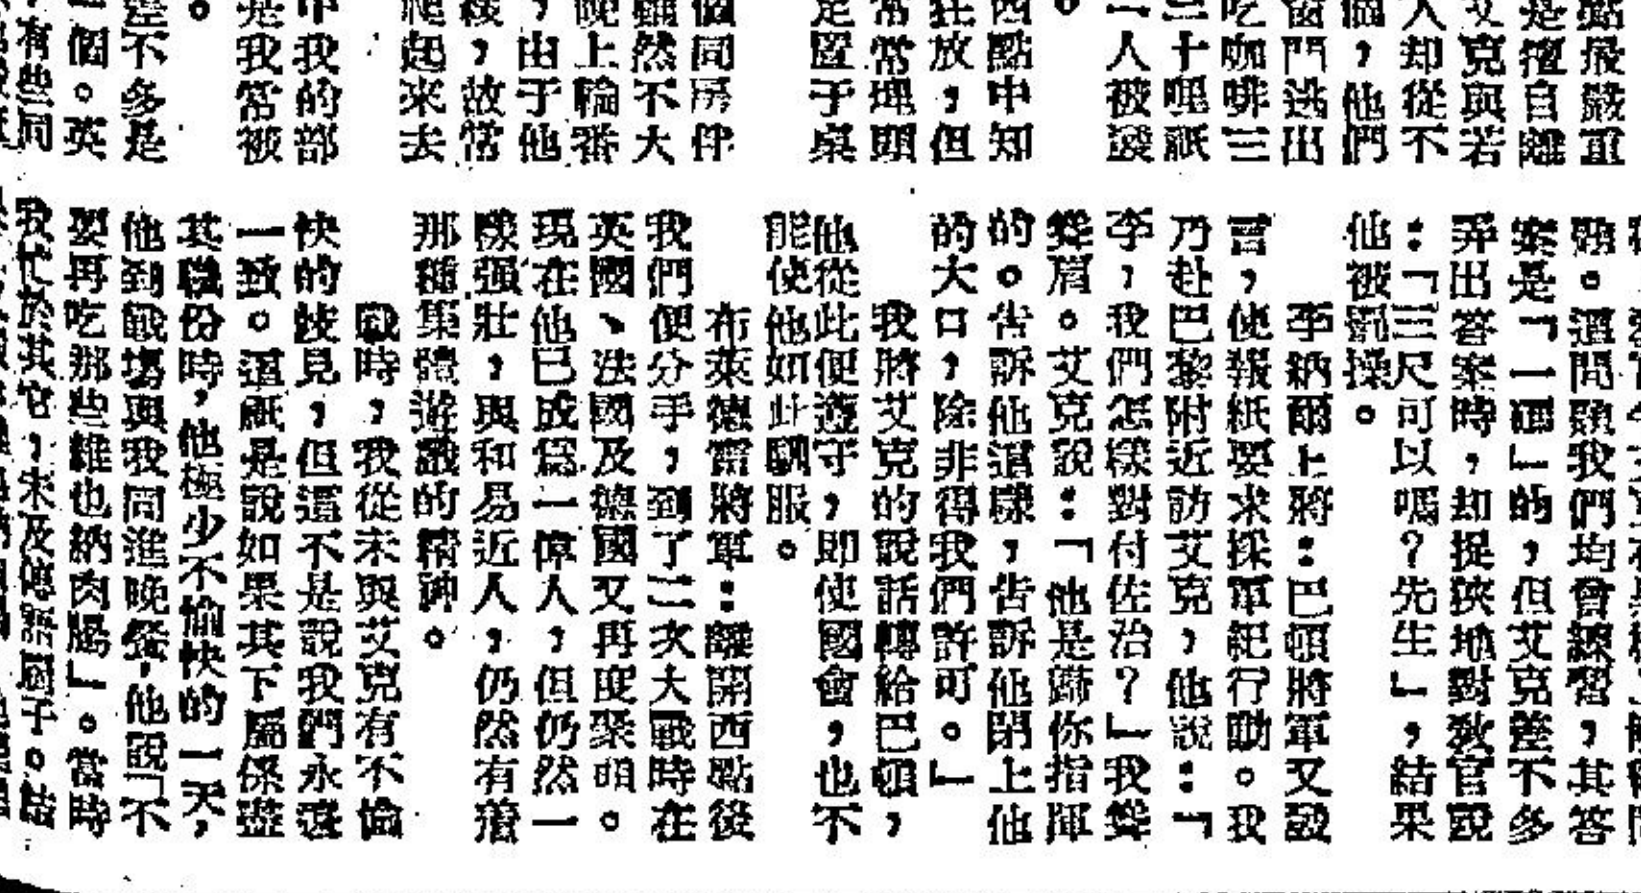 點最嚴重
是擅自離
艾克與若
人却從不
個，他們
窗門逃出
吃咖啡三
三十哩祇
人被
。
西點中知
狂放，但
常常埋頭
足置于桌
個同房伴
雖然不大
晚上輪番
，由于他
，故常
爬起來去
中我的部
是我常被
。
差不多是
一個。英
有些同
題。這問題我們均曾練習，其答
案是「一噸」的，但艾克差不多
弄出答案時，却捉狹地對教官說
：「三尺可以嗎？先生」，結果
他被罰操。
李納爾上將：巴頓將軍又說
言，使報紙要求採軍紀行動。我
乃赴巴黎附近訪艾克，他說：「
李，我們怎樣對付佐治？」我聳
聳眉。艾克說：「他是歸你指揮
的。告訴他這樣，告訴他閉上他
的大口，除非得我們許可。」
我將艾克的說話轉給巴頓，
他從此便遵守，即使國會，也不
能使他如此馴服。
布萊德雷將軍：離開西點後
我們便分手，到了二次大戰時在
英國、法國及德國又再度聚頭。
現在他已成為一偉人，但仍然一
樣强壯，與和易近人，仍然有着
那種集體遊戲的精神。
戰時，我從未與艾克有不愉
快的歧見，但這不是說我們永遠
一致。這祇是說如果其下屬係盡
其職份時，他極少不愉快的一天，
他到戰場與我同進晚餐，他說「不
要再吃那些維也納肉腸」。當時
我忙於其它，未及傳諭廚子。結